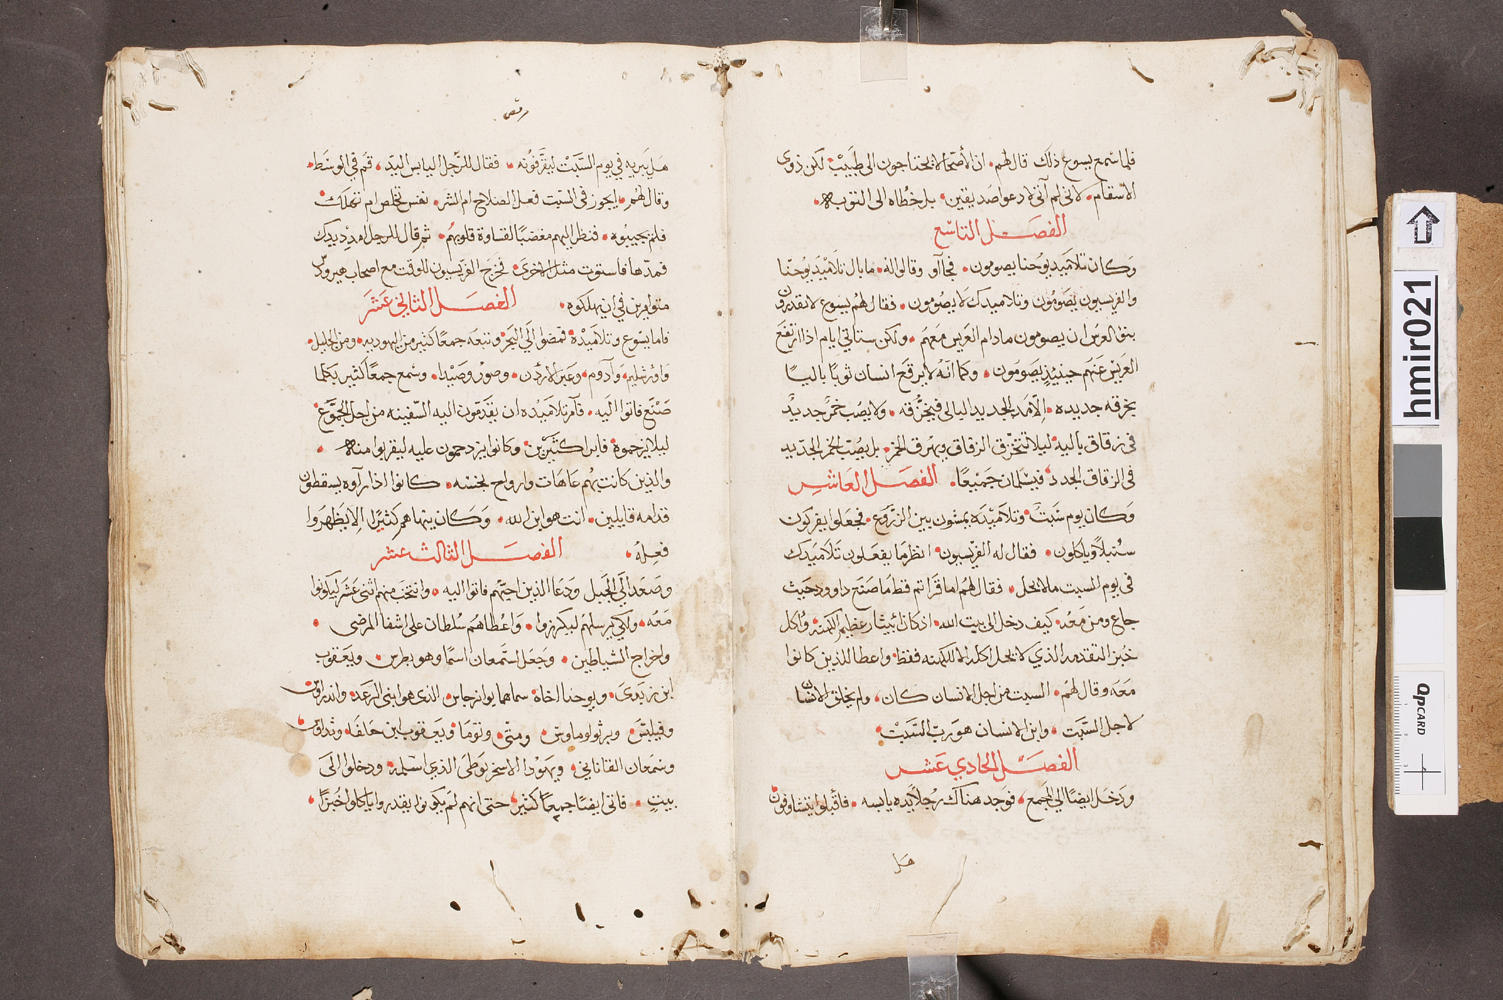 فلما سمع يسوع ذلك قال لهم. ان الأصحا لا يحتاجون الى طبيب لكن ذوى
الاسقام. لانى لم آتى لادعوا صديقين. بل خطاه الى التوبه.
الفصل التاسع
وكان تلاميد يوحنا يصومون. فجاآو وقالو اله. ما بال تلاميد يوحنا
والفريسيون يصومون وتلاميدك لا يصومون. فقال لهم يسوع لا تقدرون
بنو العرس ان يصومون مادام العريس معهم. ولكن ستاتي ايام اذا ارتفع
العريس عنهم حينيذٍ يصومون. وكما انه لا يرقع انسان ثوبًا باليــًا
بخرقه جديده. الحديد البالى فيخرقه. ولا يصب خمر جديدٌ
فى زقاق باليه ليلا تنخرق الزقاق ويهرق الخمر. بل يصب الخمر الجديد
فى الزقاق الجدد فيسلمان جميعًا. الفصل العاشر
وكان يوم سبت وتلاميده يمشون بين الزروع. فجعلوا يفركون
سنبلاً وياكلون. فقال له الفريسيون. انظر ما يفعلون تلاميدك
فى يوم السبت ما لا يحل. فقال لهم اما قراتم قط ما صنع داوود حيث
جاع ومن معه. كيف دخل الى بيت الله. اذ كان ابيثار عظيم الكهنه واكل
خبز التقدمه الذي لا يحل اكله الا للكهنه فقط. واعطا للذين كانوا
معه وقال لهم. السبت من اجل الانسان كان، ولم يخلق الانسان
لاجل السبت. وابن الانسان هو رب السبت.
الفصل الحادي عشر
ودخل ايضًا الي المجمع. فوجد هناك رجلاً يده يابسه. فاقبلوا يتشاوفون
هل
هل يبريه في يوم السبت ليقرفونه. فقال للرجل اليابس اليد. قم في الوسط.
وقال لهم. ايجوز في السبت فعل الصلاح ام الشر. نفس تخلص ام تهلك
فلم يجيبوه. فنظر اليهم مغضبًا لقساوة قلوبهم. ثم قال للرجل امدد يدك
فمدها فاستوت مثل الاخرى. فخرج الفريسيون للوقت مع اصحاب هيرودس
متوامرين في ان يهلكوه. الفصل الثاني عشر
فاما يسوع وتلاميده فمضوا الي البحر وتبعه جمعًا كثير من اليهوديه. ومن الجليل.
واورشليم. وآدوم. وعبر الاردن. وصور وصيدا. وسمع جمعًا كثير بكلما
صنع فاتوا اليه. فآمر تلاميده ان يقدمون اليه السفينه من اجل الجموع
ليلا يزحموه فابرا كثيرين. وكانوا يزدحمون عليه ليقربوا منه.
والذين كانت بهم عاهات وارواح نجسه. كانوا اذا رآوه يسقطون
قدامه قايلين. انت هو ابن الله. وكان ينهاهم كثيرًا الا يظهروا
فعله. الفصل الثالث عشر
وصعد الي الجبل ودعا الذين احبهم فاتوا اليه. وانتخب منهم اثني عشر ليكونوا
معه. ولكي يرسلهم ليكرزوا. واعطاهم سلطان على اشفا المرضى.
واخراج الشياطين. وجعل لسمعان اسمًا وهو بطرس. ويعقوب
ابن زبدى. ويوحنا اخاه سماهما بوانرجاس الذى هو ابنى الرعد. واندراوس
وفيلبس وبرثولوماوس ومتى. وتوما ويعقوب ابن حلفه وتداوس
وسمعان القاناني. ويهودا الاسخريوطى الذي اسلمه ودخلوا الى
بيتٍ. فاتى ايضًا جميعًا كثير، حتى انهم لم يكونوا يقدروا ياكلوا خبزًا.
hmir021
QP CARD